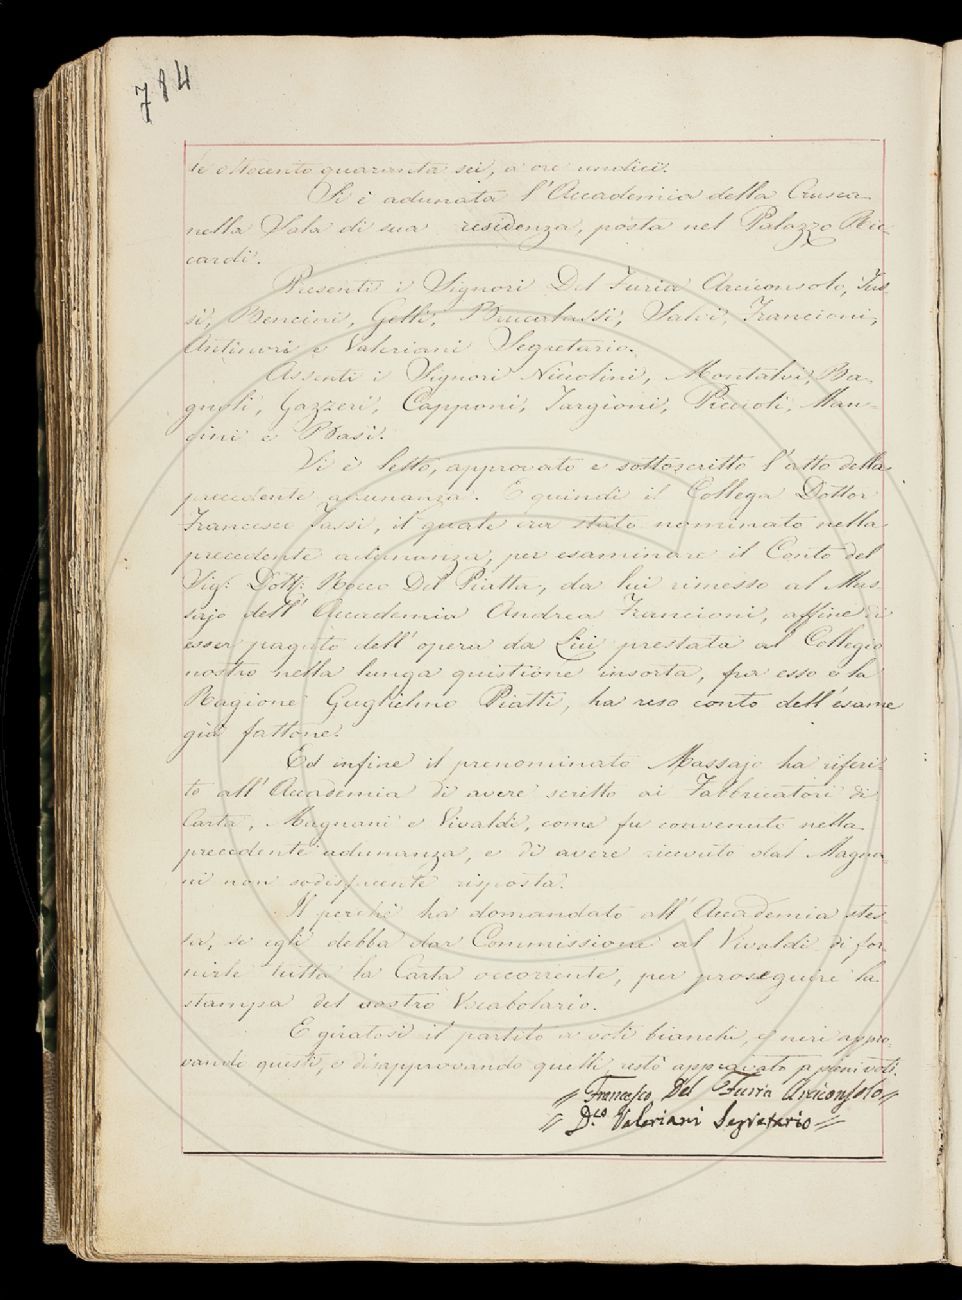 784
te ottocento quaranta sei, a ore undici.
Si è adunata l'Accademia della Crusca
nella Sala di sua residenza, posta nel Palazzo Ric-
cardi.
Presenti i Signori Del Furia Arciconsolo, Fus-
si, Bencini, Gelli, Brucalassi, Salvi, Francioni,
Antinori e Valeriani Segretario.
Assenti i Signori Niccolini, Montalvi, Ba-
gnoli, Gazzeri, Capponi, Targioni, Piccioli, Man-
cini e Basi.
Vi è letto, approvato e sottoscritto l'atto della
precedente adunanza. E quindi il Collega Dottor
Francesco Tassi, il quale era stato nominato nella
precedente adunanza, per esaminare il Conto del
Sig: Dott: Rocco Del Piatta, da lui rimesso al Mas-
sajo dell'Accademia Andrea Francioni, affine di
esser pagato dell'opera da Lui prestata al Collegio
nostro nella lunga quistione insorta, fra esso e la
Ragione Guglielmo Piatti, ha reso conto dell'esame
già fattone.
Ed infine il prenominato Massajo ha riferi-
to all'Accademia di avere scritto ai Fabbricatori di
Carta, Magnani e Vivaldi, come fu convenuto nella
precedente adunanza, e di avere ricevuto dal Magna-
ni non sodisfacente risposta.
Il perchè ha domandato all'Accademia stes-
sa, se egli debba dar Commissione al Vivaldi di for-
nirle tutta la Carta occorrente, per proseguire la
stampa del nostro Vocabolario.
E giratosi il partito a voti bianchi, e neri appro-
vando questi, e disapprovando quelli, restò approvato p pieni voti.
// Francesco Del Furia Arciconsolo //
// D.co Valeriani Segretario //